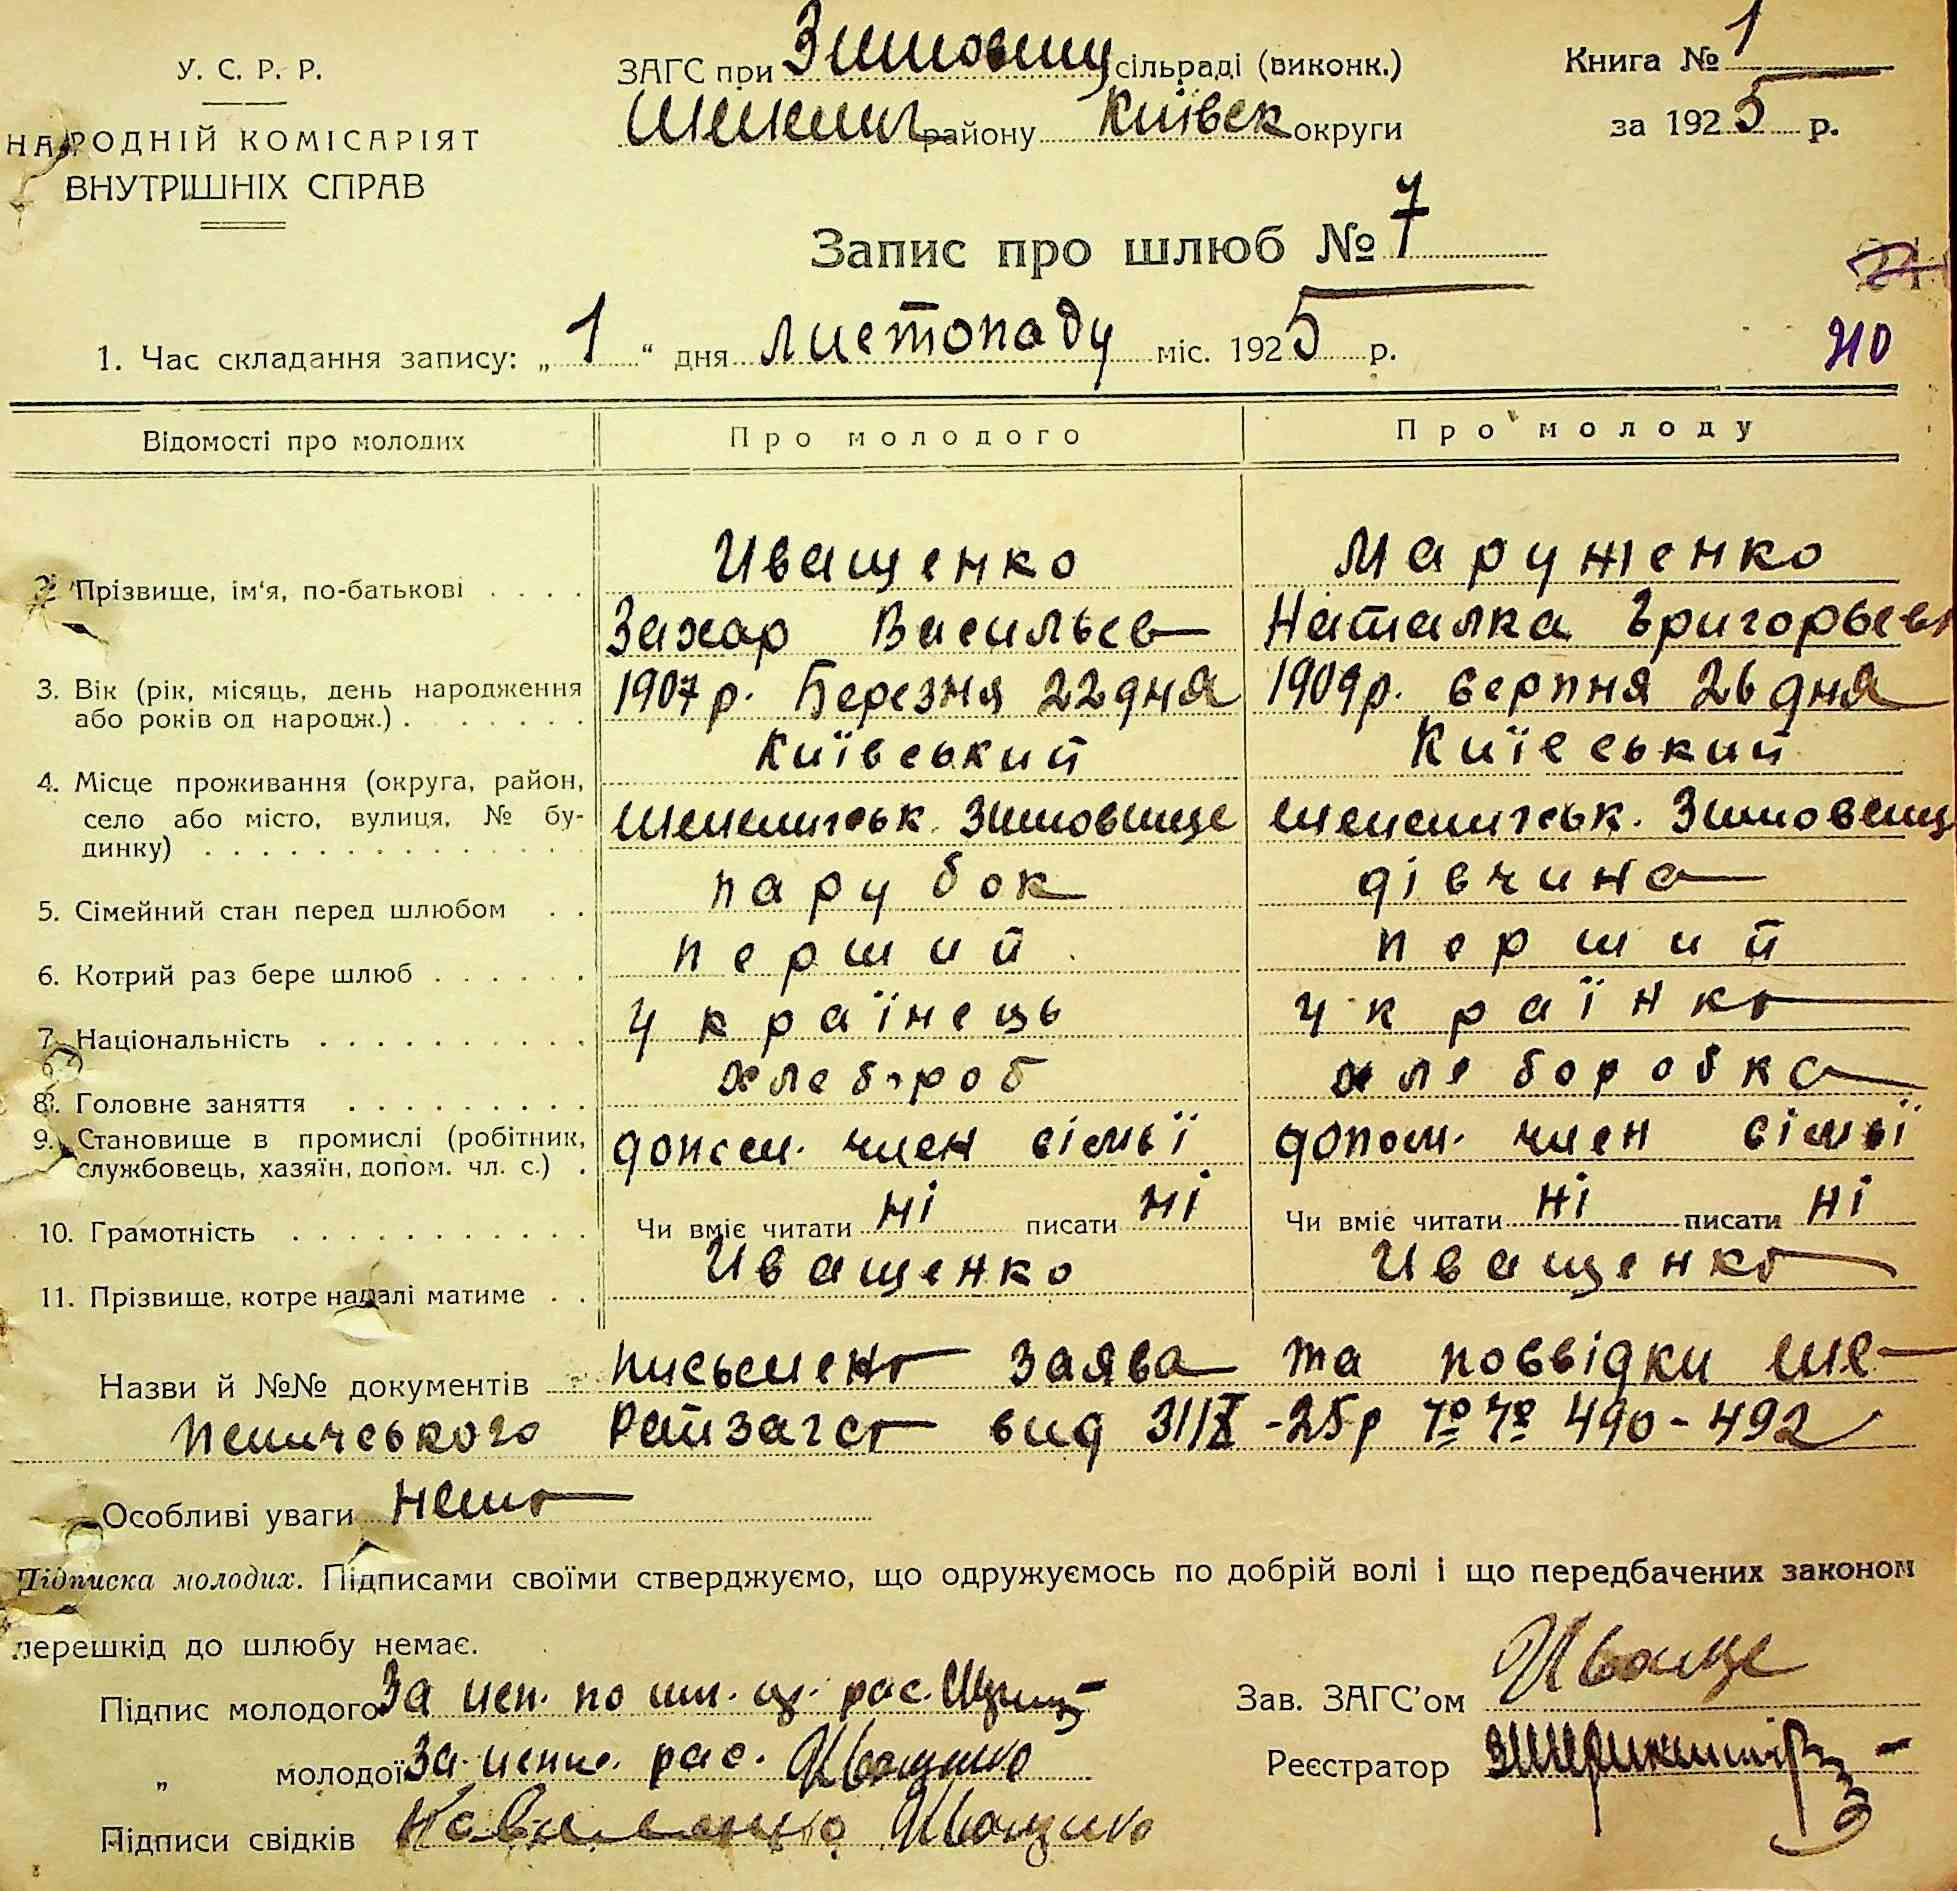 У. С. Р. Р.
НАРОДНІЙ КОМІСАРІЯТ
ВНУТРІШНІХ СПРАВ
ЗАГС при Зимовищ сільраді (виконк.)
району Київск округи
Книга № 1
за 1925 р.
Запис про шлюб № 7
1. Час складання запису: „ 1 “ дня листопаду міс. 1925 р.
210
Відомості про молодих Про молодого Про молоду
2. Прізвище, ім‘я, по-батькові . . . . Иващенко Маруженко
Захар Васильев Наталка Григорьев
3. Вік (рік, місяць, день народження 1907 р. Березня 22 дня 1909 р. серпня 26 дня
або років од народж.) . . . . . . .
Київський Київський
4. Місце проживання (округа, район,
село або місто, вулиця, № бу- Шепелигськ. Зимовище Шепелигськ. Зимовищ
динку) . . . . . . . . . . . . . .
5. Сімейний стан перед шлюбом . . парубок дівчина
6. Котрий раз бере шлюб . . . . . . перший перший
7. Національність . . . . . . . . . . українець українка
8. Головне заняття . . . . . . . . . хлебороб хлеборобка
9. Становище в промислі (робітник, допом. член сімьї допом. член сімьї
службовець, хазяїн, допом. чл. с.) .
10. Грамотність . . . . . . . . . . . Чи вміє читати ні писати ні Чи вміє читати ні писати ні
11. Прізвище, котре надалі матиме . . Иващенко Иващенко
Назви й №№ документів письмена заява та поввідки Ше-
пеличського Райзагса вид 31/X -25р №№ 490-492
Особливі уваги нема
Підписка молодих. Підписами своїми стверджуємо, що одружуємось по добрій волі і що передбачених законом
перешкід до шлюбу немає.
Підпис молодого За неп. рас.
Зав. ЗАГС’ом Иваще
„ молодої За рас. Иващенко
Реєстратор
Підписи свідків Иващенко